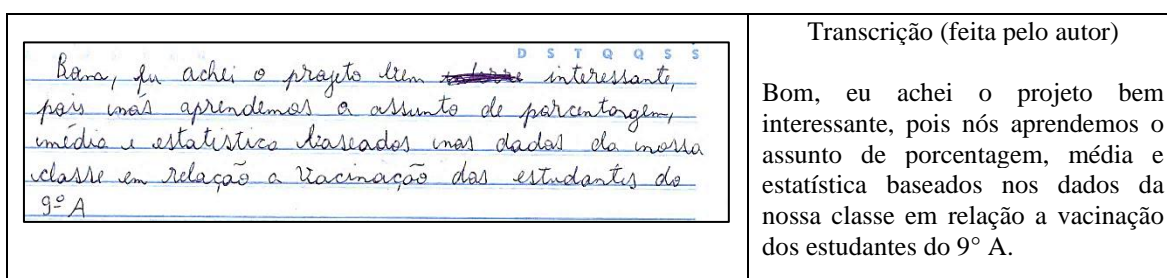 D S T Q Q S S
Bom, eu achei o projeto bem interessante,
pois nós aprendemos o assunto de porcentagem,
média e estatistica baseados nos dados da nossa
classe em relação a vacinação dos estudantes do
9º A
Transcrição (feita pelo autor)
Bom, eu achei o projeto bem
interessante, pois nós aprendemos o
assunto de porcentagem, média e
estatística baseados nos dados da
nossa classe em relação a vacinação
dos estudantes do 9° A.